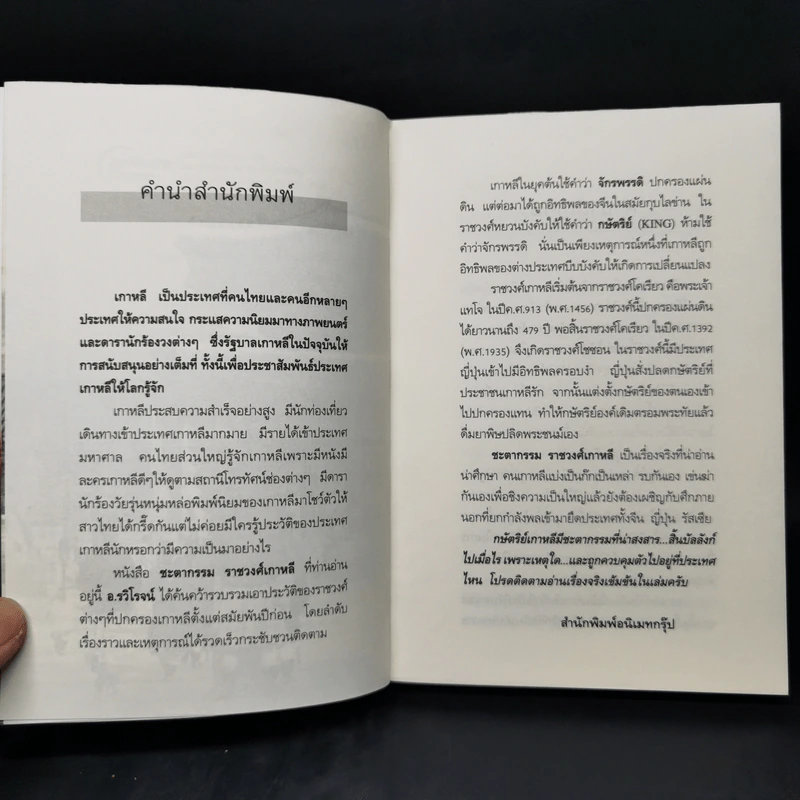 คำนำสำนักพิมพ์
เกาหลี เป็นประเทศที่คนไทยและคนอีกหลายๆ
ประเทศให้ความสนใจ กระแสความนิยมมาทางภาพยนตร์
และดารานักร้องวงต่างๆ ซึ่งรัฐบาลเกาหลีในปัจจุบันให้
การสนับสนุนอย่างเต็มที่ ทั้งนี้เพื่อประชาสัมพันธ์ประเทศ
เกาหลีให้โลกรู้จัก
เกาหลีประสบความสำเร็จอย่างสูง มีนักท่องเที่ยว
เดินทางเข้าประเทศเกาหลีมากมาย มีรายได้เข้าประเทศ
มหาศาล คนไทยส่วนใหญ่รู้จักเกาหลีเพราะมีหนังมี
ละครเกาหลีดีๆให้ดูตามสถานีโทรทัศน์ช่องต่างๆ มีดารา
นักร้องวัยรุ่นหนุ่มหล่อพิมพ์นิยมของเกาหลีมาโชว์ตัวให้
สาวไทยได้กรี๊ดกันแต่ไม่ค่อยมีใครรู้ประวัติของประเทศ
เกาหลีนักหรอกว่ามีความเป็นมาอย่างไร
หนังสือ ชะตากรรม ราชวงศ์เกาหลี ที่ท่านอ่าน
อยู่นี้ อ.รวิโรจน์ ได้ค้นคว้ารวบรวมเอาประวัติของราชวงศ์
ต่างๆที่ปกครองเกาหลีตั้งแต่สมัยพันปีก่อน โดยลำดับ
เรื่องราวและเหตุการณ์ได้รวดเร็วกระชับชวนติดตาม
เกาหลีในยุคต้นใช้คำว่า จักรพรรดิ ปกครองแผ่น
ดิน แต่ต่อมาได้ถูกอิทธิพลของจีนในสมัยกุบไลข่าน ใน
ราชวงศ์หยวนบังคับให้ใช้คำว่า กษัตริย์ (KING) ห้ามใช้
คำว่าจักรพรรดิ นั่นเป็นเพียงเหตุการณ์หนึ่งที่เกาหลีถูก
อิทธิพลของต่างประเทศบีบบังคับให้เกิดการเปลี่ยนแปลง
ราชวงศ์เกาหลีเริ่มต้นจากราชวงศ์โคเรียว คือพระเจ้า
แทโจ ในปีค.ศ.913 (พ.ศ.1456) ราชวงศ์นี้ปกครองแผ่นดิน
ได้ยาวนานถึง 479 ปี พอสิ้นราชวงศ์โคเรียว ในปีค.ศ.1392
(พ.ศ.1935) จึงเกิดราชวงศ์โชซอน ในราชวงศ์นี้มีประเทศ
ญี่ปุ่นเข้าไปมีอิทธิพลครอบงำ ญี่ปุ่นสั่งปลดกษัตริย์ที่
ประชาชนเกาหลีรัก จากนั้นแต่งตั้งกษัตริย์ของตนเองเข้า
ไปปกครองแทน ทำให้กษัตริย์องค์เดิมตรอมพระทัยแล้ว
ดื่มยาพิษปลิดพระชนม์เอง
ชะตากรรม ราชวงศ์เกาหลี เป็นเรื่องจริงที่น่าอ่าน
น่าศึกษา คนเกาหลีแบ่งเป็นก๊กเป็นเหล่า รบกันเอง เข่นฆ่า
กันเองเพื่อชิงความเป็นใหญ่แล้วยังต้องเผชิญกับศึกภาย
นอกที่ยกกำลังพลเข้ามายึดประเทศทั้งจีน ญี่ปุ่น รัสเซีย
กษัตริย์เกาหลีมีชะตากรรมที่น่าสงสาร...สิ้นบัลลังก์
ไปเมื่อไร เพราะเหตุใด...และถูกควบคุมตัวไปอยู่ที่ประเทศ
ไหน โปรดติดตามอ่านเรื่องจริงเข้มข้นในเล่มครับ
สำนักพิมพ์อนิเมทกรุ๊ป